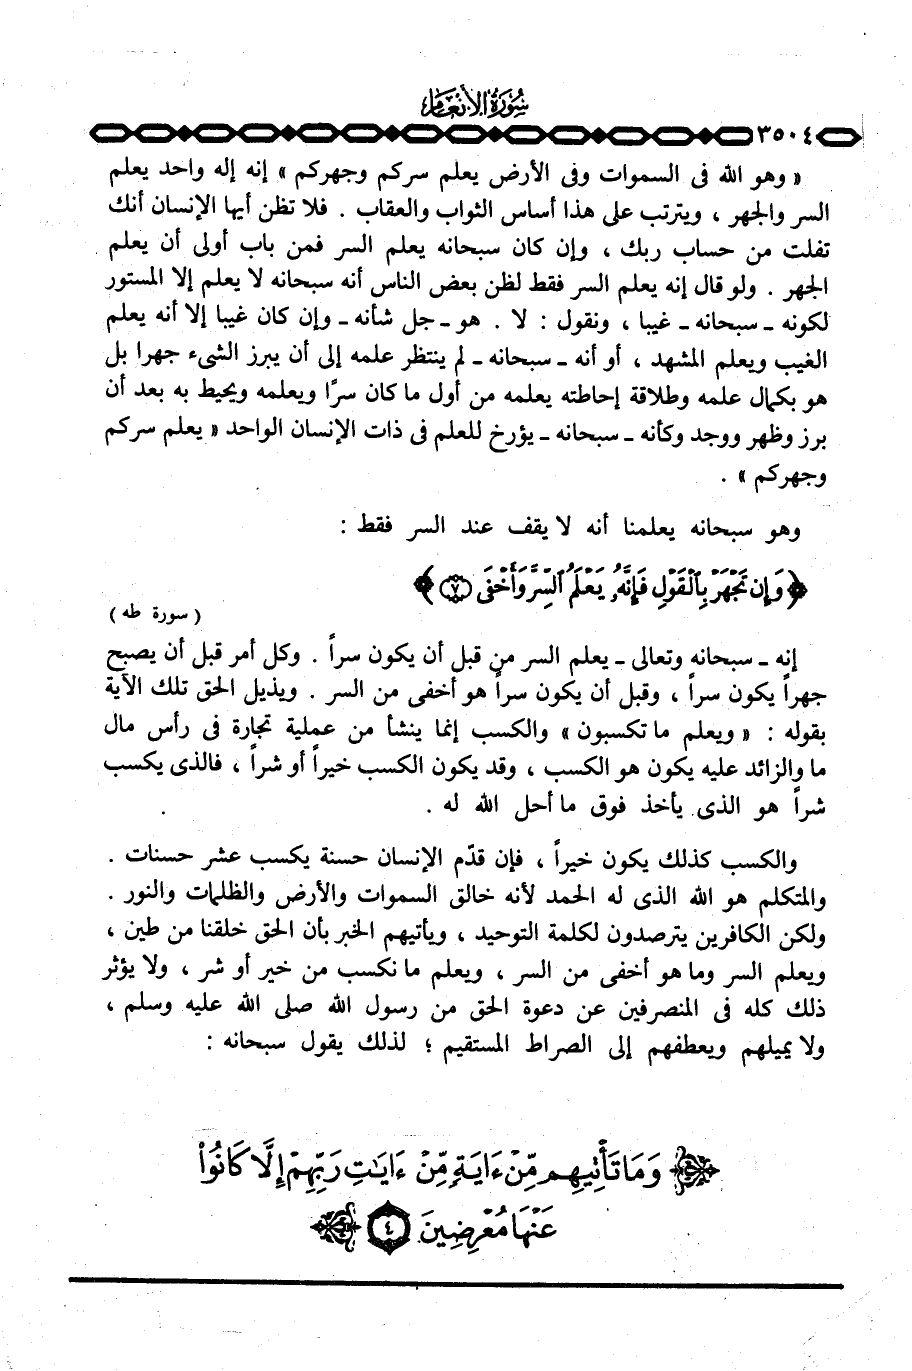 سورة الأنعام
٣٥٠٤
« وهو الله فى السموات وفى الأرض يعلم سركم وجهركم » إنه إله واحد يعلم
السر والجهر ، ويترتب على هذا أساس الثواب والعقاب . فلا تظن أيها الإنسان أنك
تفلت من حساب ربك ، وإن كان سبحانه يعلم السر فمن باب أولى أن يعلم
الجهر . ولو قال إنه يعلم السر فقط لظن بعض الناس أنه سبحانه لا يعلم إلا المستور
لكونه - سبحانه - غيبا ، ونقول : لا . هو - جل شأنه - وإن كان غيبا إلا أنه يعلم
الغيب ويعلم المشهد ، أو أنه - سبحانه - لم ينتظر علمه إلى أن يبرز الشىء جهرا بل
هو بكمال علمه وطلاقة إحاطته يعلمه من أول ما كان سرًا ويعلمه ويحيط به بعد أن
برز وظهر ووجد وكأنه - سبحانه - يؤرخ للعلم فى ذات الإنسان الواحد « يعلم سركم
وجهركم » .
وهو سبحانه يعلمنا أنه لا يقف عند السر فقط :
﴿ وَإِن تَجْهَرْ بِالْقَوْلِ فَإِنَّهُ يَعْلَمُ السِّرَّ وَأَخْفَى ٧ ﴾
( سورة طه )
إنه - سبحانه وتعالى - يعلم السر من قبل أن يكون سراً . وكل أمر قبل أن يصبح
جهراً يكون سراً ، وقبل أن يكون سراً هو أخفى من السر . ويذيل الحق تلك الآية
بقوله : « ويعلم ما تكسبون » والكسب إنما ينشأ من عملية تجارة فى رأس مال
ما والزائد عليه يكون هو الكسب ، وقد يكون الكسب خيراً أو شراً ، فالذى يكسب
شراً هو الذى يأخذ فوق ما أحل الله له .
والكسب كذلك يكون خيراً ، فإن قدّم الإنسان حسنة يكسب عشر حسنات .
والمتكلم هو الله الذى له الحمد لأنه خالق السموات والأرض والظلمات والنور .
ولكن الكافرين يترصدون لكلمة التوحيد ، ويأتيهم الخبر بأن الحق خلقنا من طين ،
ويعلم السر وما هو أخفى من السر ، ويعلم ما نكسب من خير أو شر ، ولا يؤثر
ذلك كله فى المنصرفين عن دعوة الحق من رسول الله صلى الله عليه وسلم ،
ولا يميلهم ويعطفهم إلى الصراط المستقيم ؛ لذلك يقول سبحانه :
وَمَا تَأْتِيهِم مِّنْ ءَايَةٍ مِّنْ ءَايَٰتِ رَبِّهِمْ إِلَّا كَانُوا۟
عَنْهَا مُعْرِضِينَ ٤